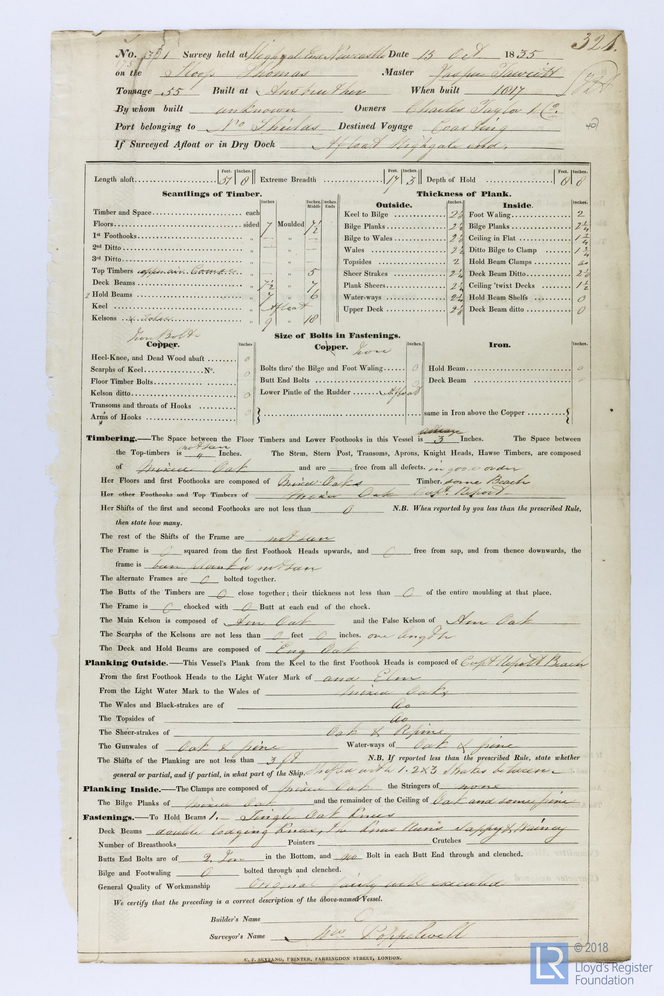 No. 321 Survey held at Highgate End Newcastle Date 15 Oct 1835
321.
on the Sloop Thomas Master
Tonnage 55 Built at Anstruther When built 1817
By whom built unknown Owners Charles Taylor & Co.
Port belonging to No Shields Destined Voyage Coasting
If Surveyed Afloat or in Dry Dock Afloat Highgate end.
Length aloft Feet. 51 Inches. 8 Extreme Breadth Feet. 17 Inches. 3 Depth of Hold Feet. Inches.
Scantlings of Timber.
Timber and Space each
Floors sided 7 Moulded 7½
1st Foothooks
2nd Ditto
3rd Ditto
Top Timbers 5
Deck Beams 7½ 7
Hold Beams 7 6
Keel Afloat
Kelsons 9 18
Thickness of Plank.
Outside.
Keel to Bilge
Bilge Planks
Bilge to Wales
Wales
Topsides 2
Sheer Strakes
Plank Sheers
Water-ways
Upper Deck
Inside.
Foot Waling 2
Bilge Planks
Ceiling in Flat
Ditto Bilge to Clamp
Hold Beam Clamps
Deck Beam Ditto
Ceiling 'twixt Decks
Hold Beam Shelfs 0
Deck Beam ditto 0
Size of Bolts in Fastenings.
Iron Bolts
Copper.
Heel-Knee, and Dead Wood abaft 0
Scarphs of Keel No. 0
Floor Timber Bolts
Kelson ditto 0
Transoms and throats of Hooks
Arms of Hooks
Copper. Iron
Bolts thro' the Bilge and Foot Waling 0
Butt End Bolts
Lower Pintle of the Rudder Afloat
Iron.
Hold Beam
Deck Beam
same in Iron above the Copper
Timbering.—The Space between the Floor Timbers and Lower Foothooks in this Vessel is average 3 Inches. The Space between
the Top-timbers is not seen Inches. The Stem, Stern Post, Transoms, Aprons, Knight Heads, Hawse Timbers, are composed
of mixed Oak and are free from all defects. in good order
Her Floors and first Foothooks are composed of mixed Oaks Timber. some Beech
Her other Foothooks and Top Timbers of mixed Oak Capt. Report
Her Shifts of the first and second Foothooks are not less than 0 N.B. When reported by you less than the prescribed Rule,
then state how many.
The rest of the Shifts of the Frame are not seen
The Frame is 0 squared from the first Foothook Heads upwards, and 0 free from sap, and from thence downwards, the
frame is not seen
The alternate Frames are 0 bolted together.
The Butts of the Timbers are 0 close together; their thickness not less than 0 of the entire moulding at that place.
The Frame is 0 chocked with 0 Butt at each end of the chock.
The Main Kelson is composed of Am Oak and the False Kelson of Am Oak
The Scarphs of the Kelsons are not less than 0 feet 0 inches. one length
The Deck and Hold Beams are composed of Eng Oak
Planking Outside.—This Vessel's Plank from the Keel to the first Foothook Heads is composed of Capt Report Beech
From the first Foothook Heads to the Light Water Mark of and Elm
From the Light Water Mark to the Wales of mixed Oaks
The Wales and Black-strakes are of do
The Topsides of do
The Sheer-strakes of Oak & R pine
The Gunwales of Oak & pine Water-ways of Oak & pine
The Shifts of the Planking are not less than 3 ft N.B. If reported less than the prescribed Rule, state whether
general or partial, and if partial, in what part of the Ship. Shifted with 1. 2 & 3 Strakes between
Planking Inside.—The Clamps are composed of mixed Oak the Stringers of none
The Bilge Planks of mixed Oak and the remainder of the Ceiling of Oak and some pine
Fastenings.—To Hold Beams 1. Single Oak knees
Deck Beams double lodging knees,
Number of Breasthooks Pointers Crutches
Butts End Bolts are of in the Bottom, and no Bolt in each Butt End through and clenched.
Bilge and Footwaling 0 bolted through and clenched.
General Quality of Workmanship Original fairly well executed
We certify that the preceding is a correct description of the above-named Vessel.
Builder's Name
Surveyor's Name Wm. Popplewell
C. F. SEYFANG, PRINTER, FARRINGDON STREET, LONDON.
LR
© 2018
Lloyd's Register
Foundation